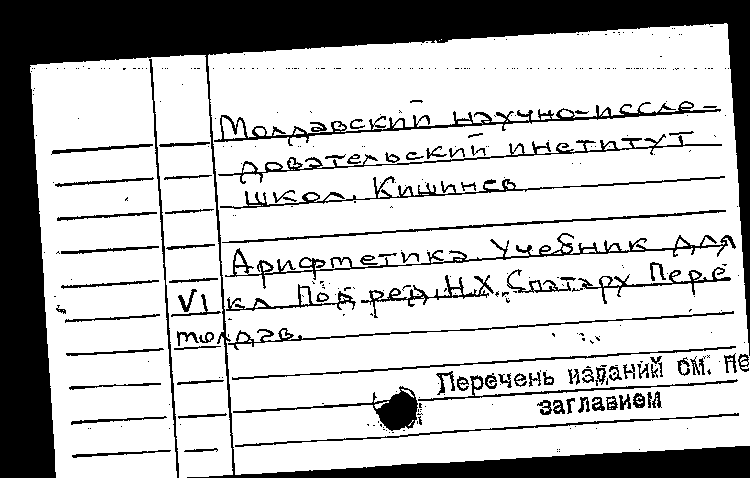 Молдавский научно-иссле-
довательский институт
школ. Кишинев
Арифметика Учебник для
VI кл Под ред. Н.Х. Спатару Пер с
молдав.
Перечень изданий см. пе
заглавием